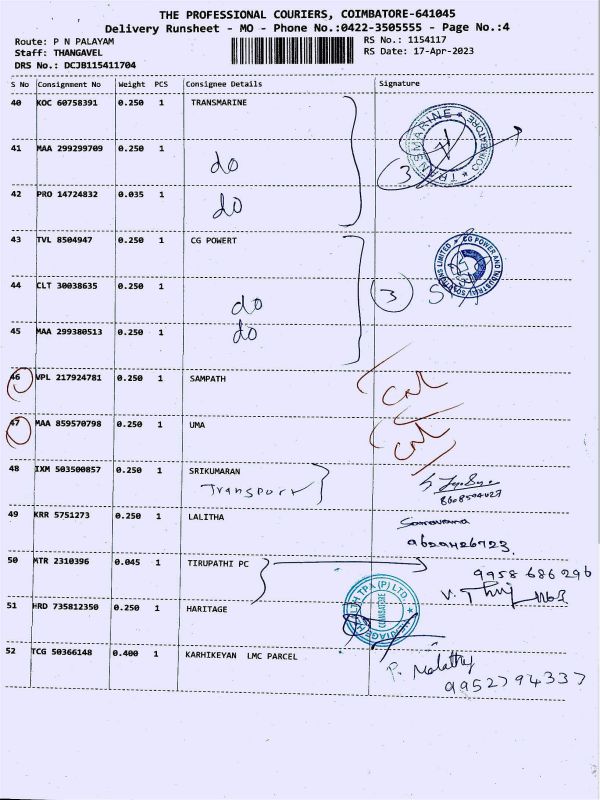 THE PROFESSIONAL COURIERS, COIMBATORE-641045
Delivery Runsheet - MO - Phone No.:0422-3505555 - Page No.:4
Route: P N PALAYAM
RS No.: 1154117
Staff: THANGAVEL
RS Date: 17-Apr-2023
DRS No.: DCJB115411704
S No Consignment No Weight PCS Consignee Details Signature
40 KOC 60758391 0.250 1 TRANSMARINE
TRANSMARINE * COIMBATORE *
41 MAA 299299709 0.250 1 do
3
42 PRO 14724832 0.035 1 do
43 TVL 8504947 0.250 1 CG POWERT
CG POWER AND INDUSTRIAL SOLUTIONS LIMITED
44 CLT 30038635 0.250 1 do
3
45 MAA 299380513 0.250 1 do
46 VPL 217924781 0.250 1 SAMPATH
47 MAA 859570798 0.250 1 UMA
48 IXM 503500857 0.250 1 SRIKUMARAN
Transport
8608504027
49 KRR 5751273 0.250 1 LALITHA
9629426723
50 MTR 2310396 0.045 1 TIRUPATHI PC
9958686296
51 HRD 735812350 0.250 1 HARITAGE
HEALTH TPA (P) LTD
COIMBATORE
52 TCG 50366148 0.400 1 KARHIKEYAN LMC PARCEL
P. Malathy
9952794337